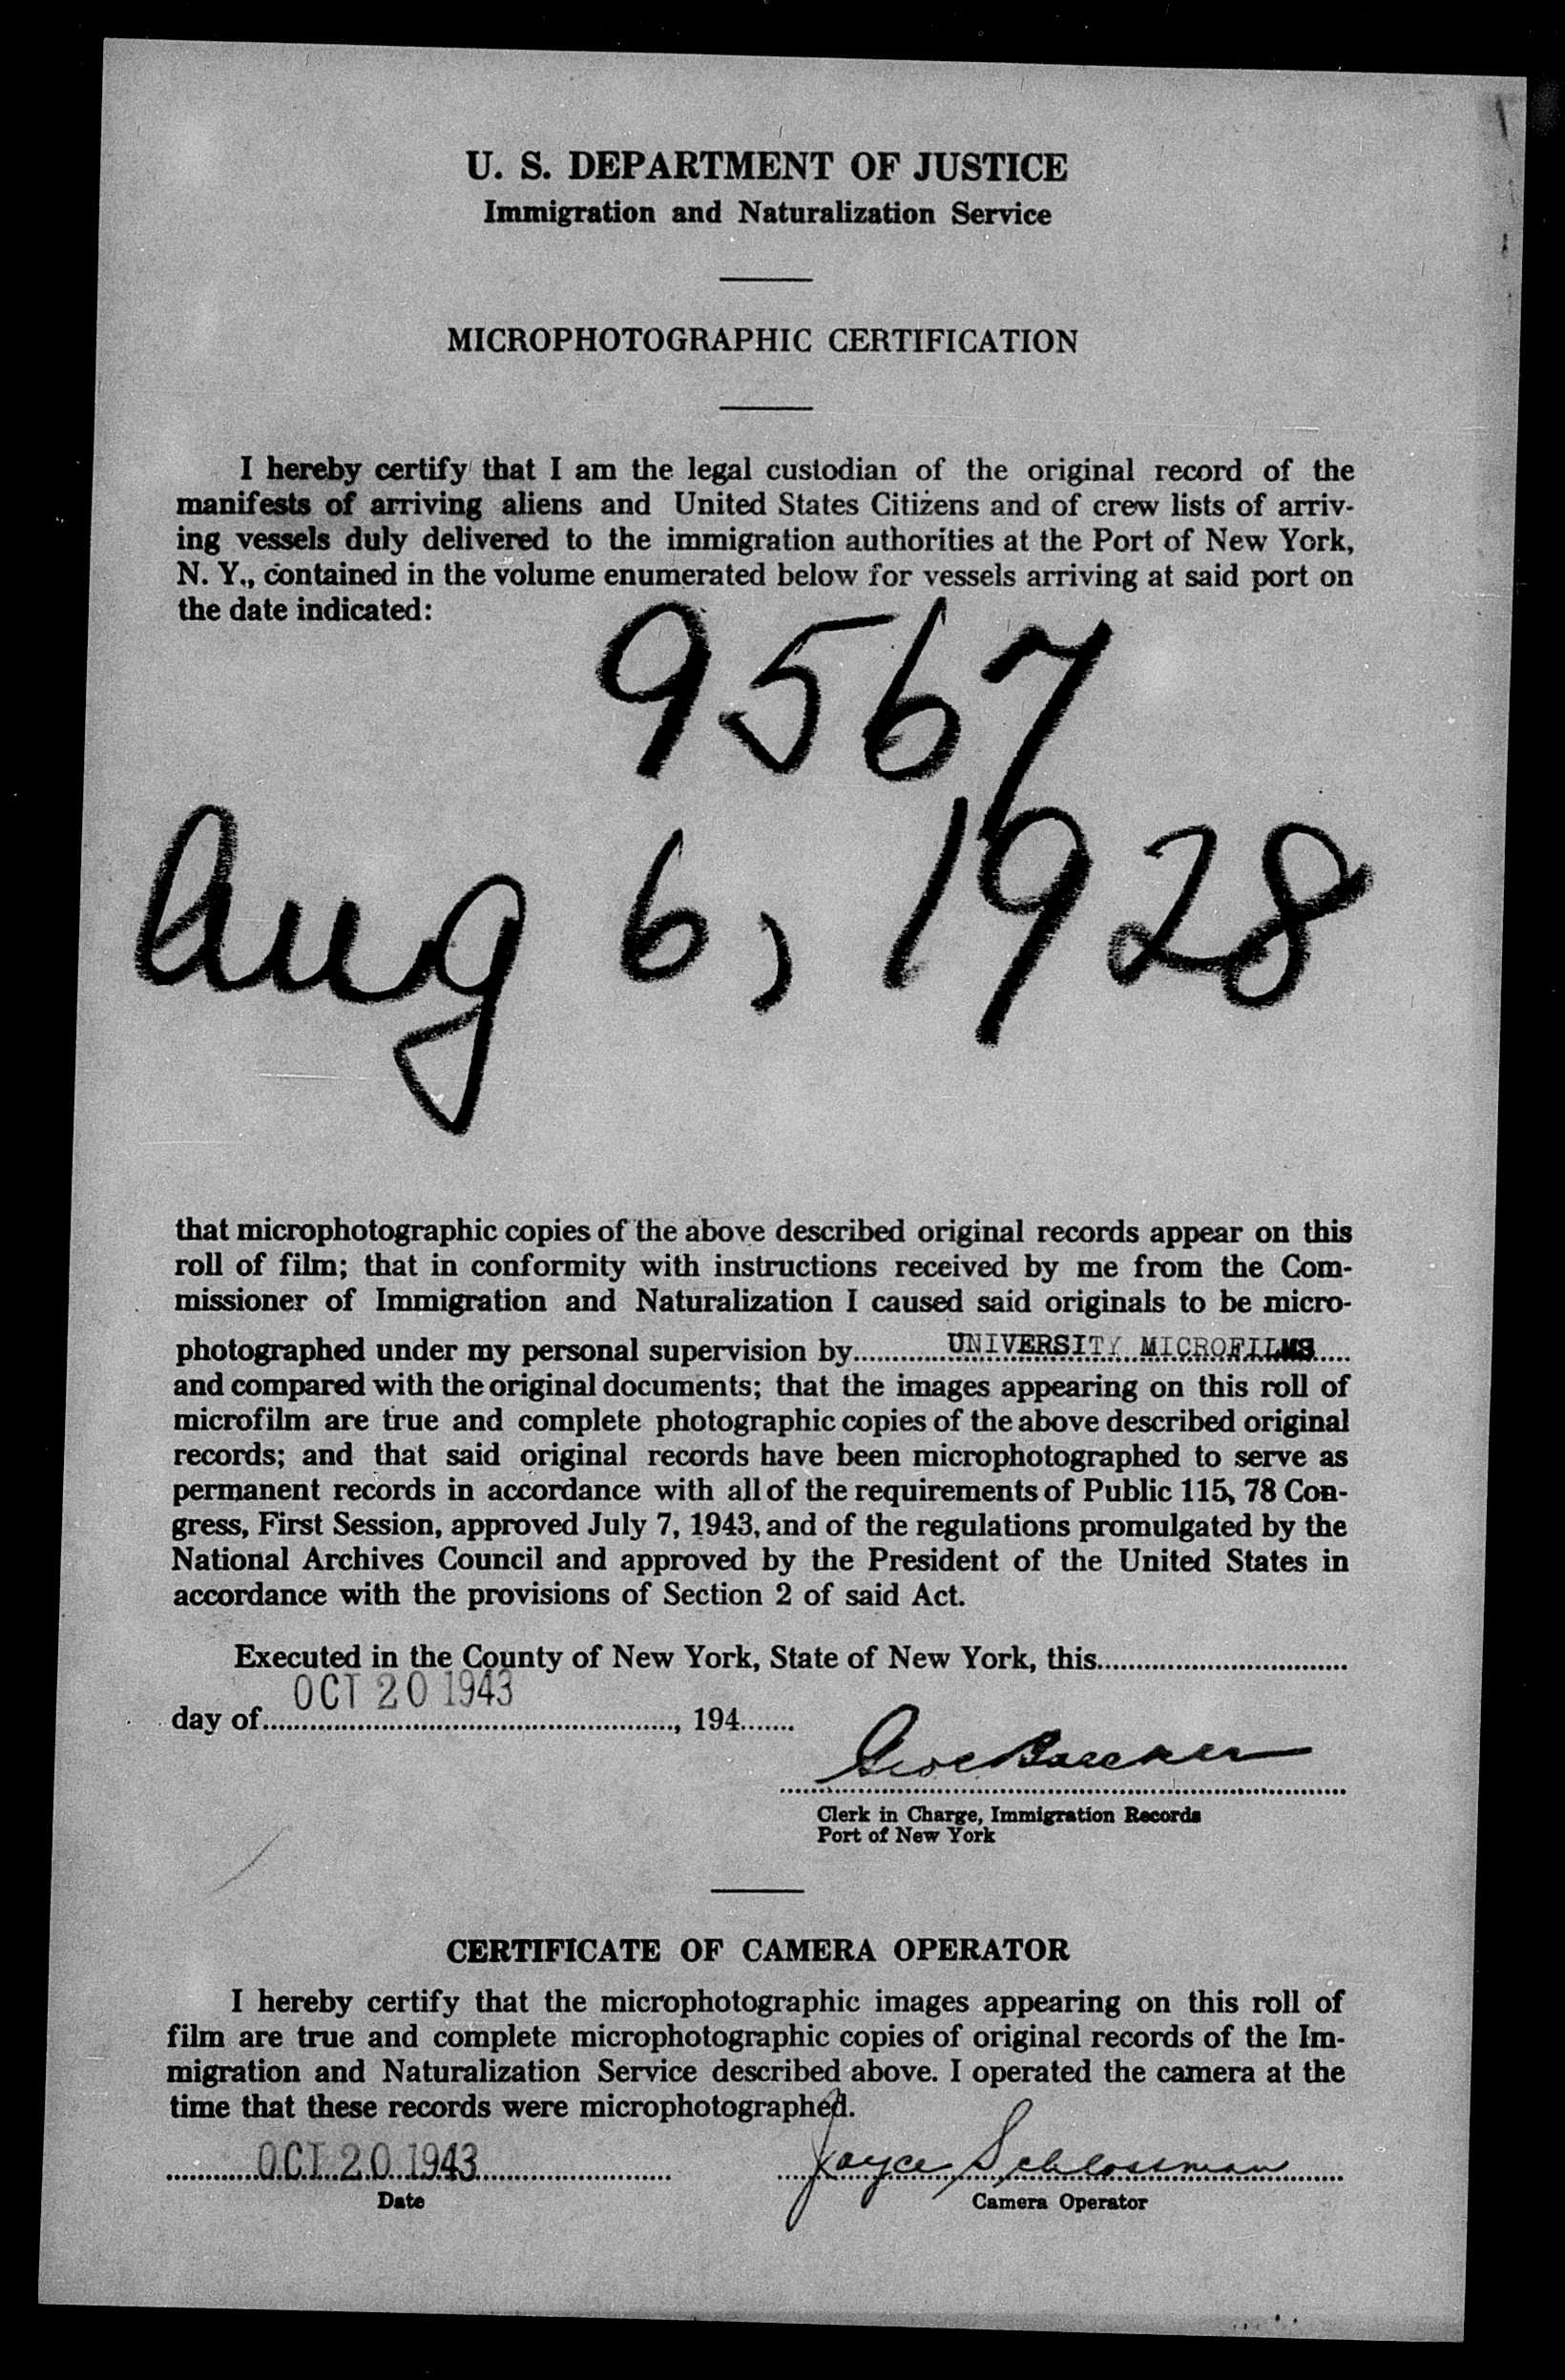 U. S. DEPARTMENT OF JUSTICE
Immigration and Naturalization Service
MICROPHOTOGRAPHIC CERTIFICATION
I hereby certify that I am the legal custodian of the original record of the
manifests of arriving aliens and United States Citizens and of crew lists of arriv-
ing vessels duly delivered to the immigration authorities at the Port of New York,
N. Y., contained in the volume enumerated below for vessels arriving at said port on
the date indicated:
9567
Aug 6, 1928
that microphotographic copies of the above described original records appear on this
roll of film; that in conformity with instructions received by me from the Com-
missioner of Immigration and Naturalization I caused said originals to be micro-
photographed under my personal supervision by UNIVERSITY MICROFILMS
and compared with the original documents; that the images appearing on this roll of
microfilm are true and complete photographic copies of the above described original
records; and that said original records have been microphotographed to serve as
permanent records in accordance with all of the requirements of Public 115, 78 Con-
gress, First Session, approved July 7, 1943, and of the regulations promulgated by the
National Archives Council and approved by the President of the United States in
accordance with the provisions of Section 2 of said Act.
Executed in the County of New York, State of New York, this
OCT 20 1943
day of , 194
Clerk in Charge, Immigration Records
Port of New York
CERTIFICATE OF CAMERA OPERATOR
I hereby certify that the microphotographic images appearing on this roll of
film are true and complete microphotographic copies of original records of the Im-
migration and Naturalization Service described above. I operated the camera at the
time that these records were microphotographed.
OCT 20 1943 Joyce Schlossman
Date Camera Operator